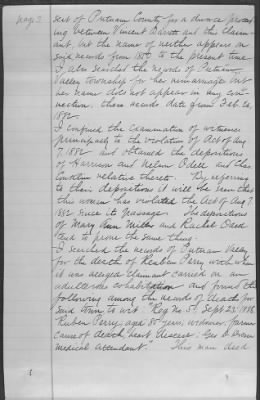 page 3
sent of Putnam County for a divorce proceed
ing between Vincent Barrett and this claim-
ant, but the name of neither appears on
said records from 1850 to the present time.
I also searched the records of Putnam
Valley township for her remarriage but
her name does not appear in any con-
nection. These records date from Feb 26,
1882.
I confined the examination of witnesses
principally to the violation of Act of Aug
7, 1882 and obtained the depositions
of Harrison and Nelson Odell and this
relative thereto. By referring
to their depositions it will be seen that
this woman has violated the Act of Aug 7
1882 since its passage. The depositions
of Mary Ann Miller and Rachel
tend to prove the same thing.
I searched the records of Putnam Valley
for the death of Reuben Perry with whom
it was alleged claimant carried on an
adulterous cohabitation and found the
following among the records of deaths for
said town, to wit: "Reg No. 5. Sept 23, 1886
Ruben Perry, aged 85 years, widower, farmer
cause of death, heart disease. Geo
medical attendant." This man died